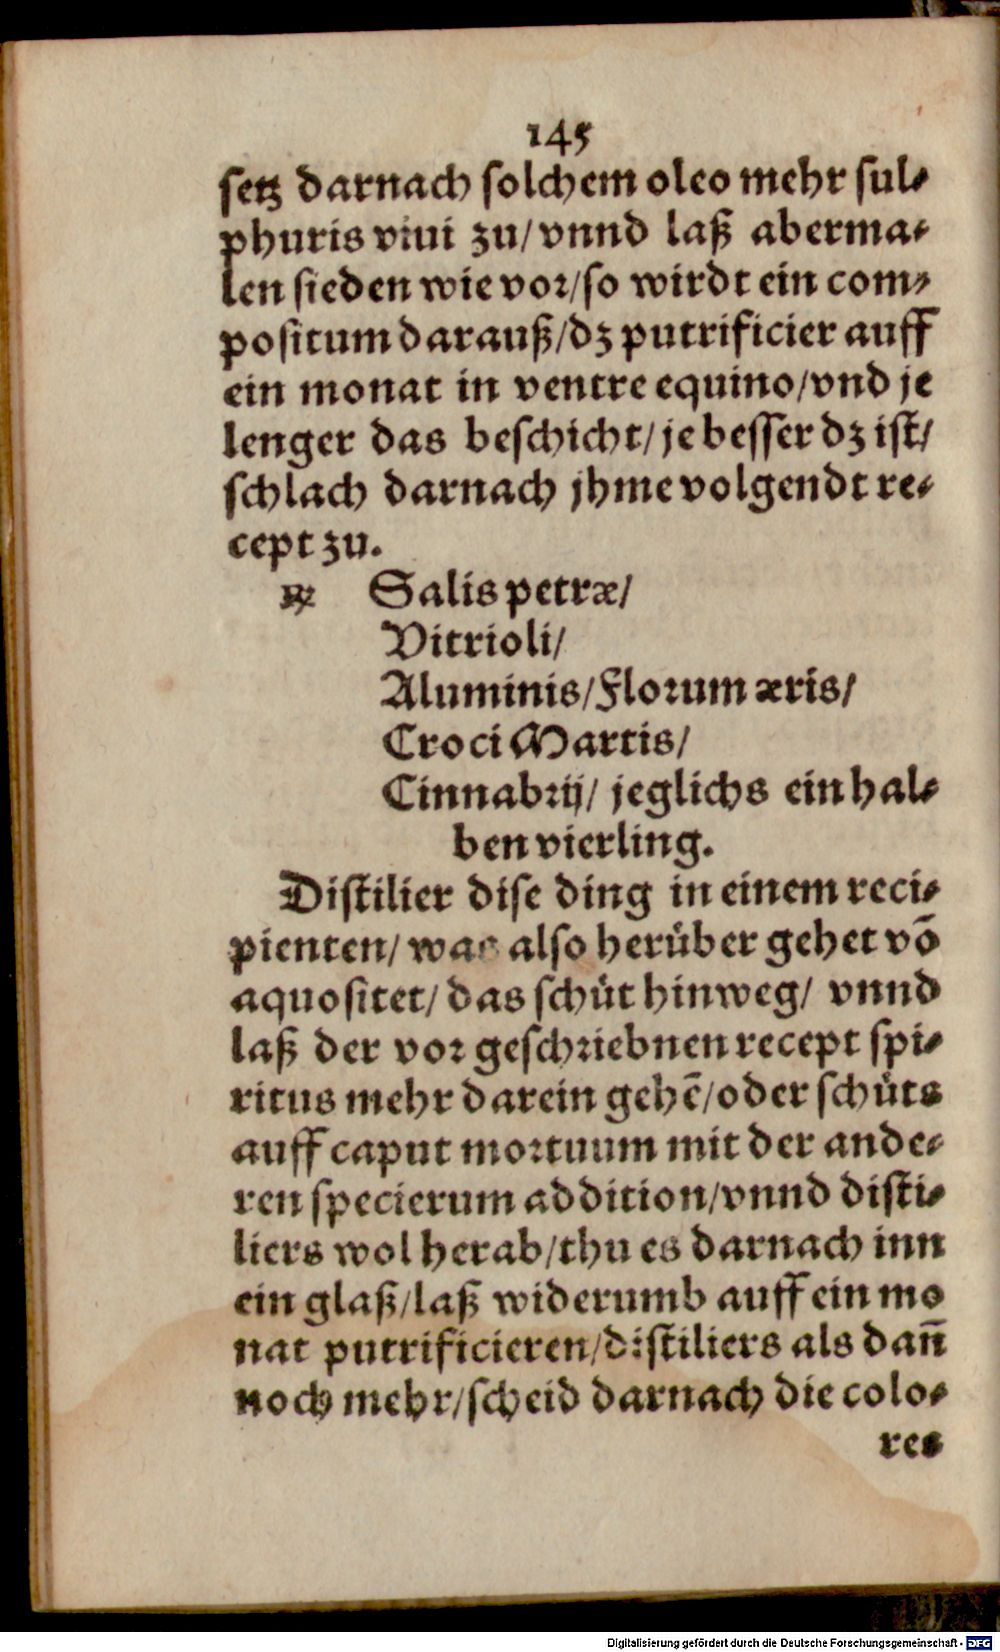 145
setz darnach solchem oleo mehr sul⸗
phuris viui zu/ vnnd laß aberma⸗
len sieden wie vor/ so wirdt ein com⸗
positum darauß/ dz putrificier auff
ein monat in ventre equino/ vnd je
lenger das beschicht/ je besser dz ist/
schlach darnach jhme volgendt re⸗
cept zu.
℞ Salis petræ/
Vitrioli/
Aluminis/ Florum æris/
Croci Martis/
Cinnabrij/ jeglichs ein hal⸗
ben vierling.
Distilier dise ding in einem reci⸗
pienten/ was also herüber gehet võ
aquositet/ das schüt hinweg/ vnnd
laß der vor geschriebnen recept spi⸗
ritus mehr darein gehẽ/ oder schüts
auff caput mortuum mit der ande⸗
ren specierum addition/ vnnd disti⸗
liers wol herab/ thu es darnach inn
ein glaß/ laß widerumb auff ein mo
nat putrificieren/ distiliers als dañ
noch mehr/ scheid darnach die colo⸗
res
Digitalisierung gefördert durch die Deutsche Forschungsgemeinschaft - DFG